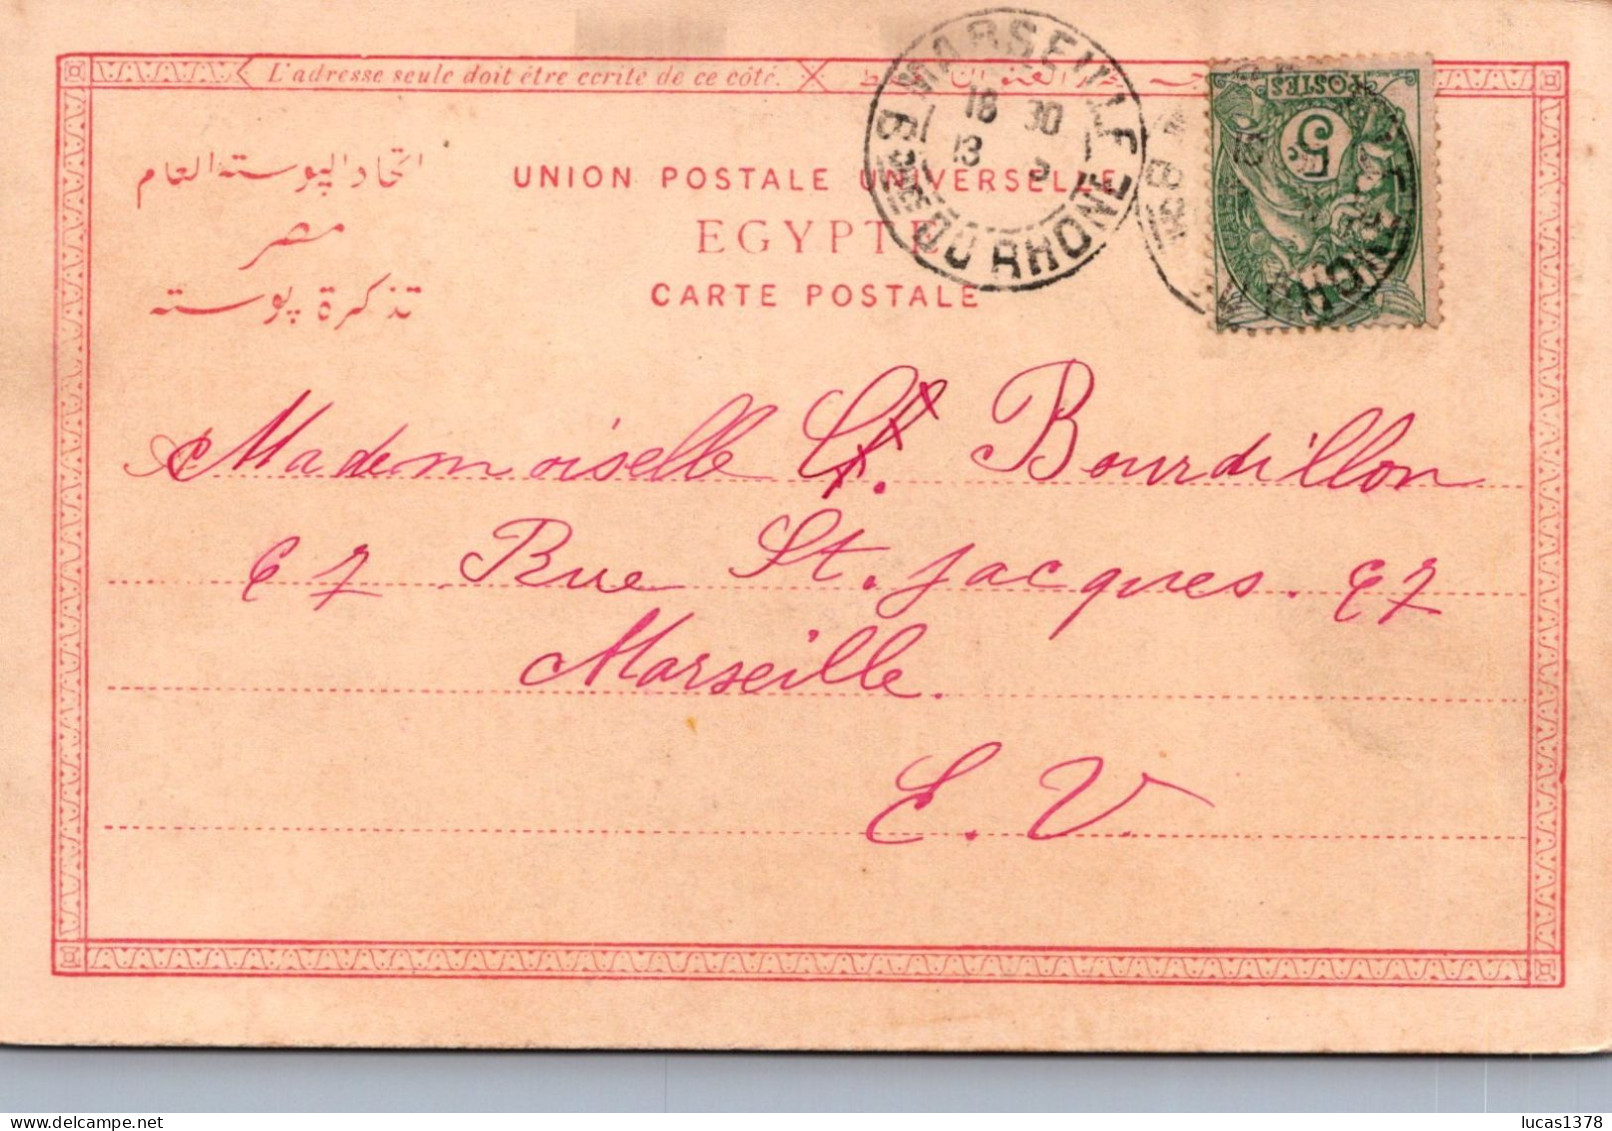 L'adresse seule doit être écrite de ce côté.
MARSEILLE
18 30
13 3
BCHES DU RHONE
POSTES
5
اتحاد البوسته العام
UNION POSTALE UNIVERSELLE
مصر
EGYPTE
تذكرة بوسته
CARTE POSTALE
Mademoiselle Bourdillon
67 Rue St. Jacques. 67
Marseille.
E. V.
lucas1378